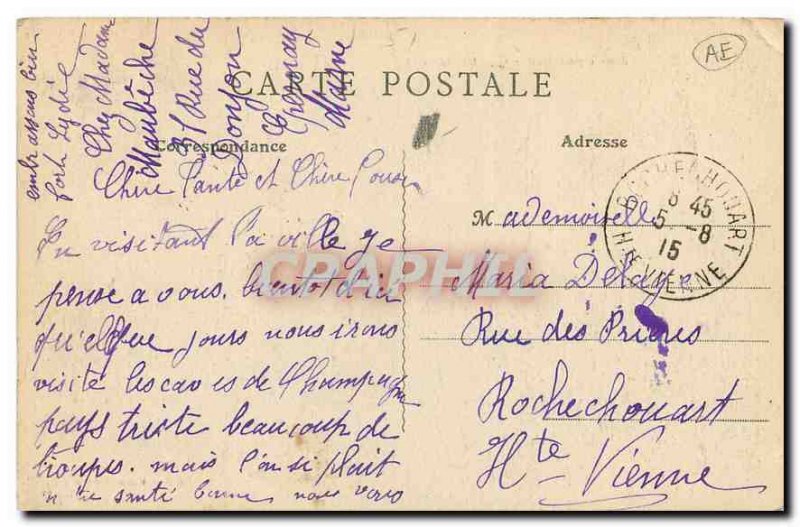 embrassons bien
fort Lydie
Chez Madame
Maubêche
31 Rue du
Donjon
Epernay
Marne
AE
CARTE POSTALE
Correspondance
Adresse
Chère Tante et Chère Cousi
En visitant la ville je
pense a vous. bientot d'ici
quelque jours nous irons
visité les caves de Champagne
pays triste beaucoup de
troupes. mais l'on si plait
santé bonne nous vous
ROCHECHOUART
8 45
5 -8
15
HTE VIENNE
Mademoiselle
Maria Delage
Rue des Prières
Rochechouart
Hte Vienne
CPAPHIL.com